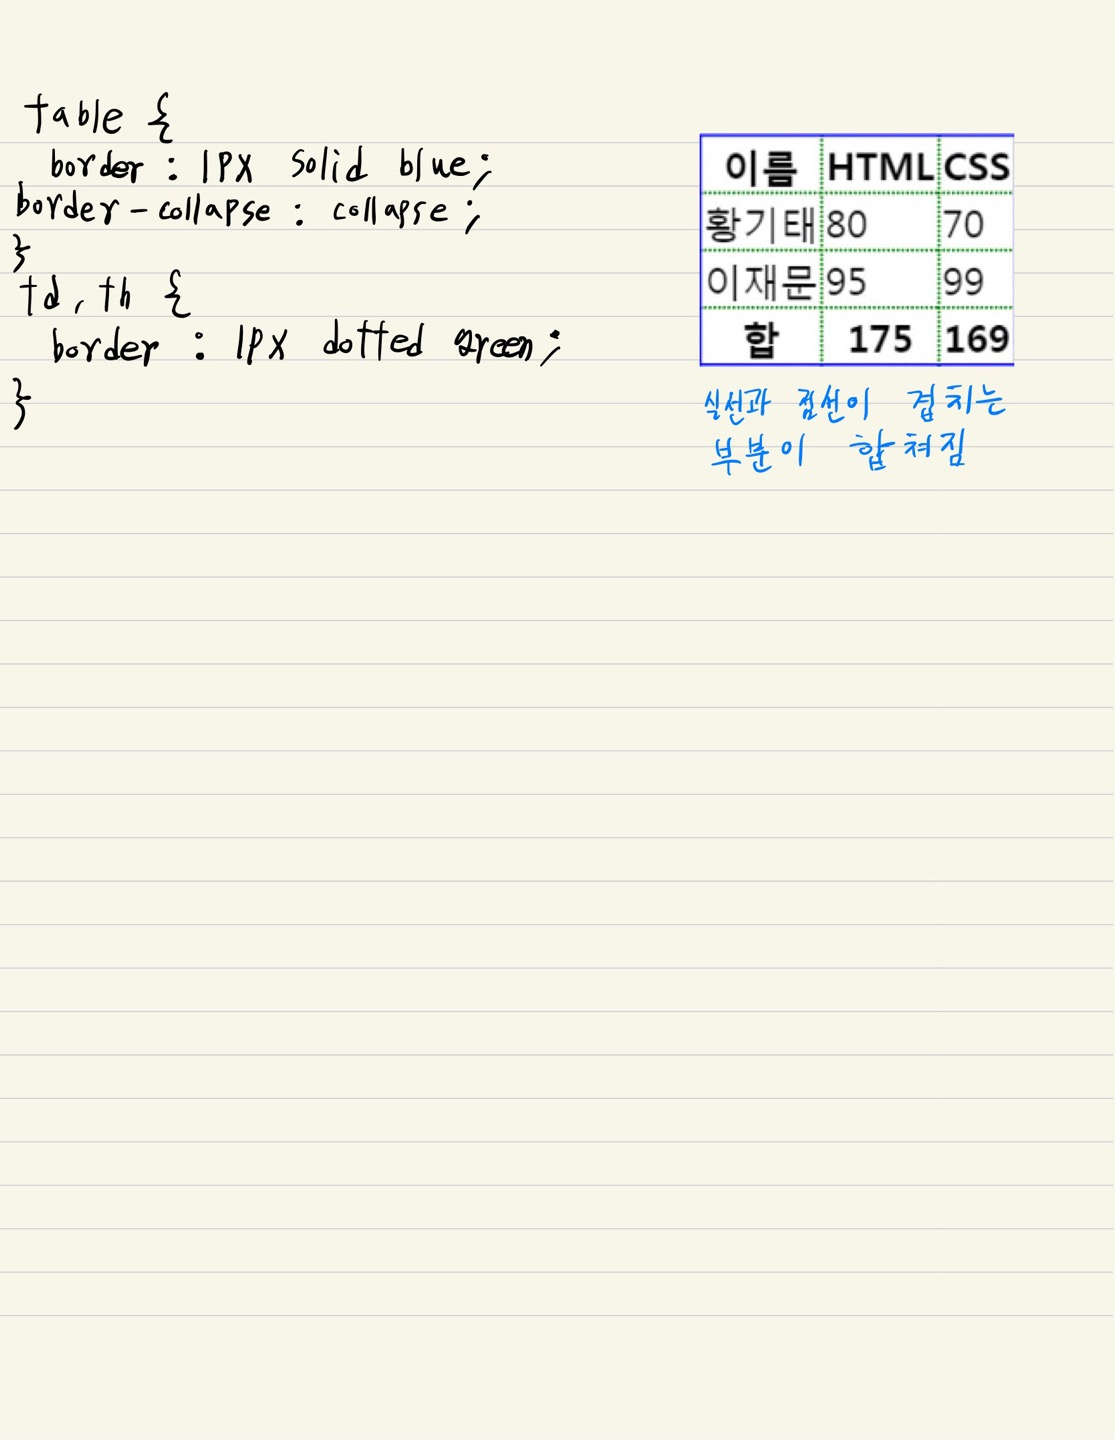 table {
border : 1px solid blue;
border-collapse : collapse ;
}
td, th {
border : 1px dotted green;
}
이름 HTML CSS
황기태 80 70
이재문 95 99
합 175 169
실선과 점선이 겹치는
부분이 합쳐짐